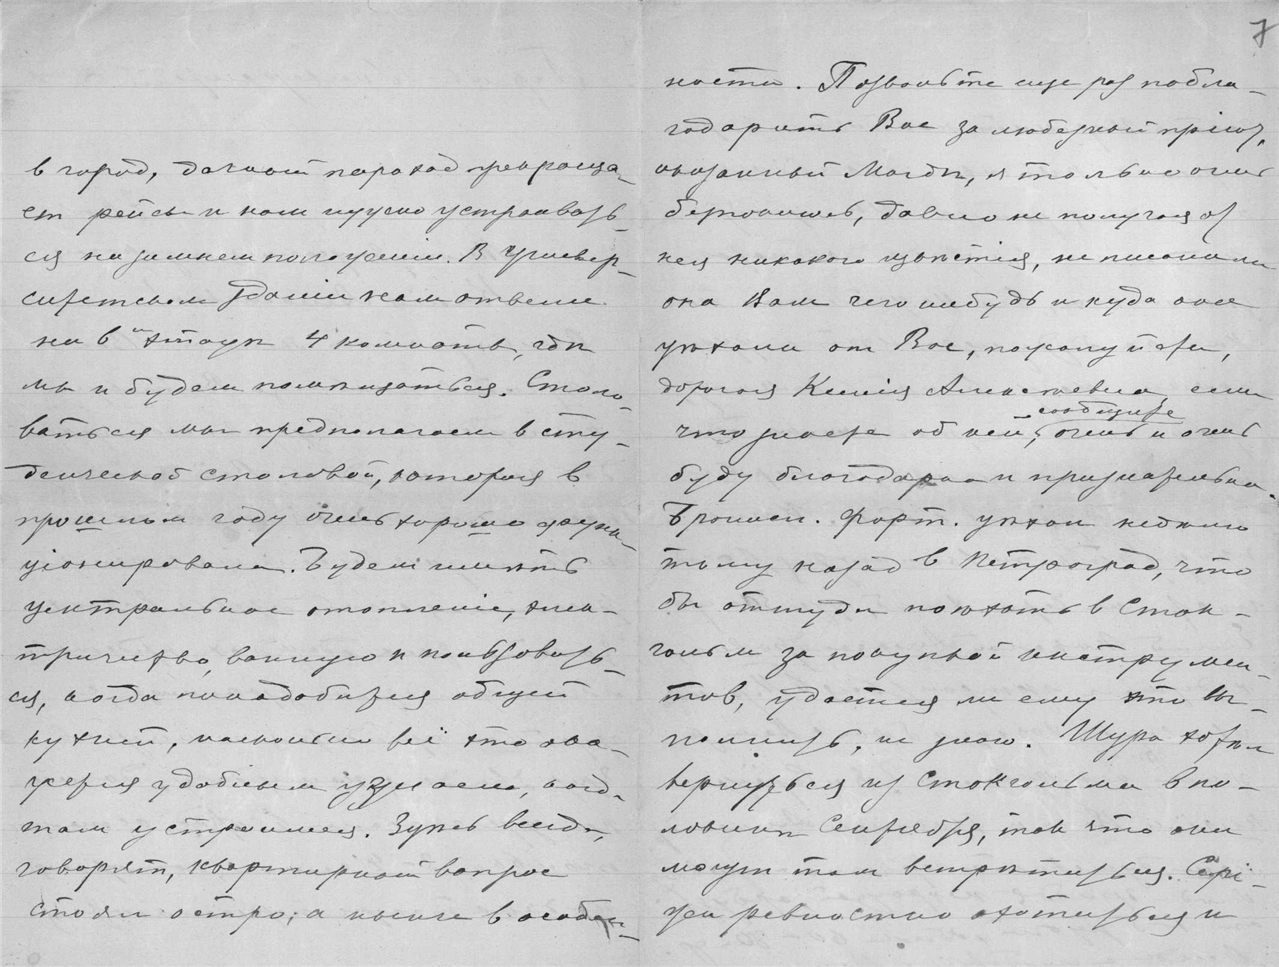 в город, дачный пароход прекраща-
ет рейсы и нам нужно устраивать-
ся на зимнем положенiи. В Универ-
ситетском зданiи нам отвели
на 6м этаже 4 комнаты, где
мы и будем помещаться. Столо-
ваться мы предполагаем в сту-
денческой столовой, которая в
прошлом году очень хорошо функ-
цiонировала. Будем иметь
центральное отопленiе, элек-
тричество, ванную и пользовать-
ся, когда понадобится общей
кухней, насколько всё это ока-
жется удобным узнаем, когда
там устроимся. Здесь всегда,
говорят, квартирный вопрос
стоял остро; а нынче в особен-
7
ности. Позвольте еще раз побла-
годарить Вас за любезный прiем,
оказанный Магде, я только очень
беспокоюсь, давно не получая от
нея никакого известiя, не писала ли
она Вам чего нибудь и куда они
уехали от Вас, пожалуйста,
дорогая Ксенiя Алексеевна если
сообщите
что знаете об ней, очень и очень
буду благодарна и признательна.
Бронисл. Форт. уехал недавно
тому назад в Петроград, что
бы оттуда поехать в Сток-
гольм за покупкой инструмен-
тов, удастся ли ему это вы-
полнить, не знаю. Шура хотел
вернуться из Стокгольма в по-
ловине Сентября, так что они
могут там встретиться. Сергi-
ревностно охотиться и